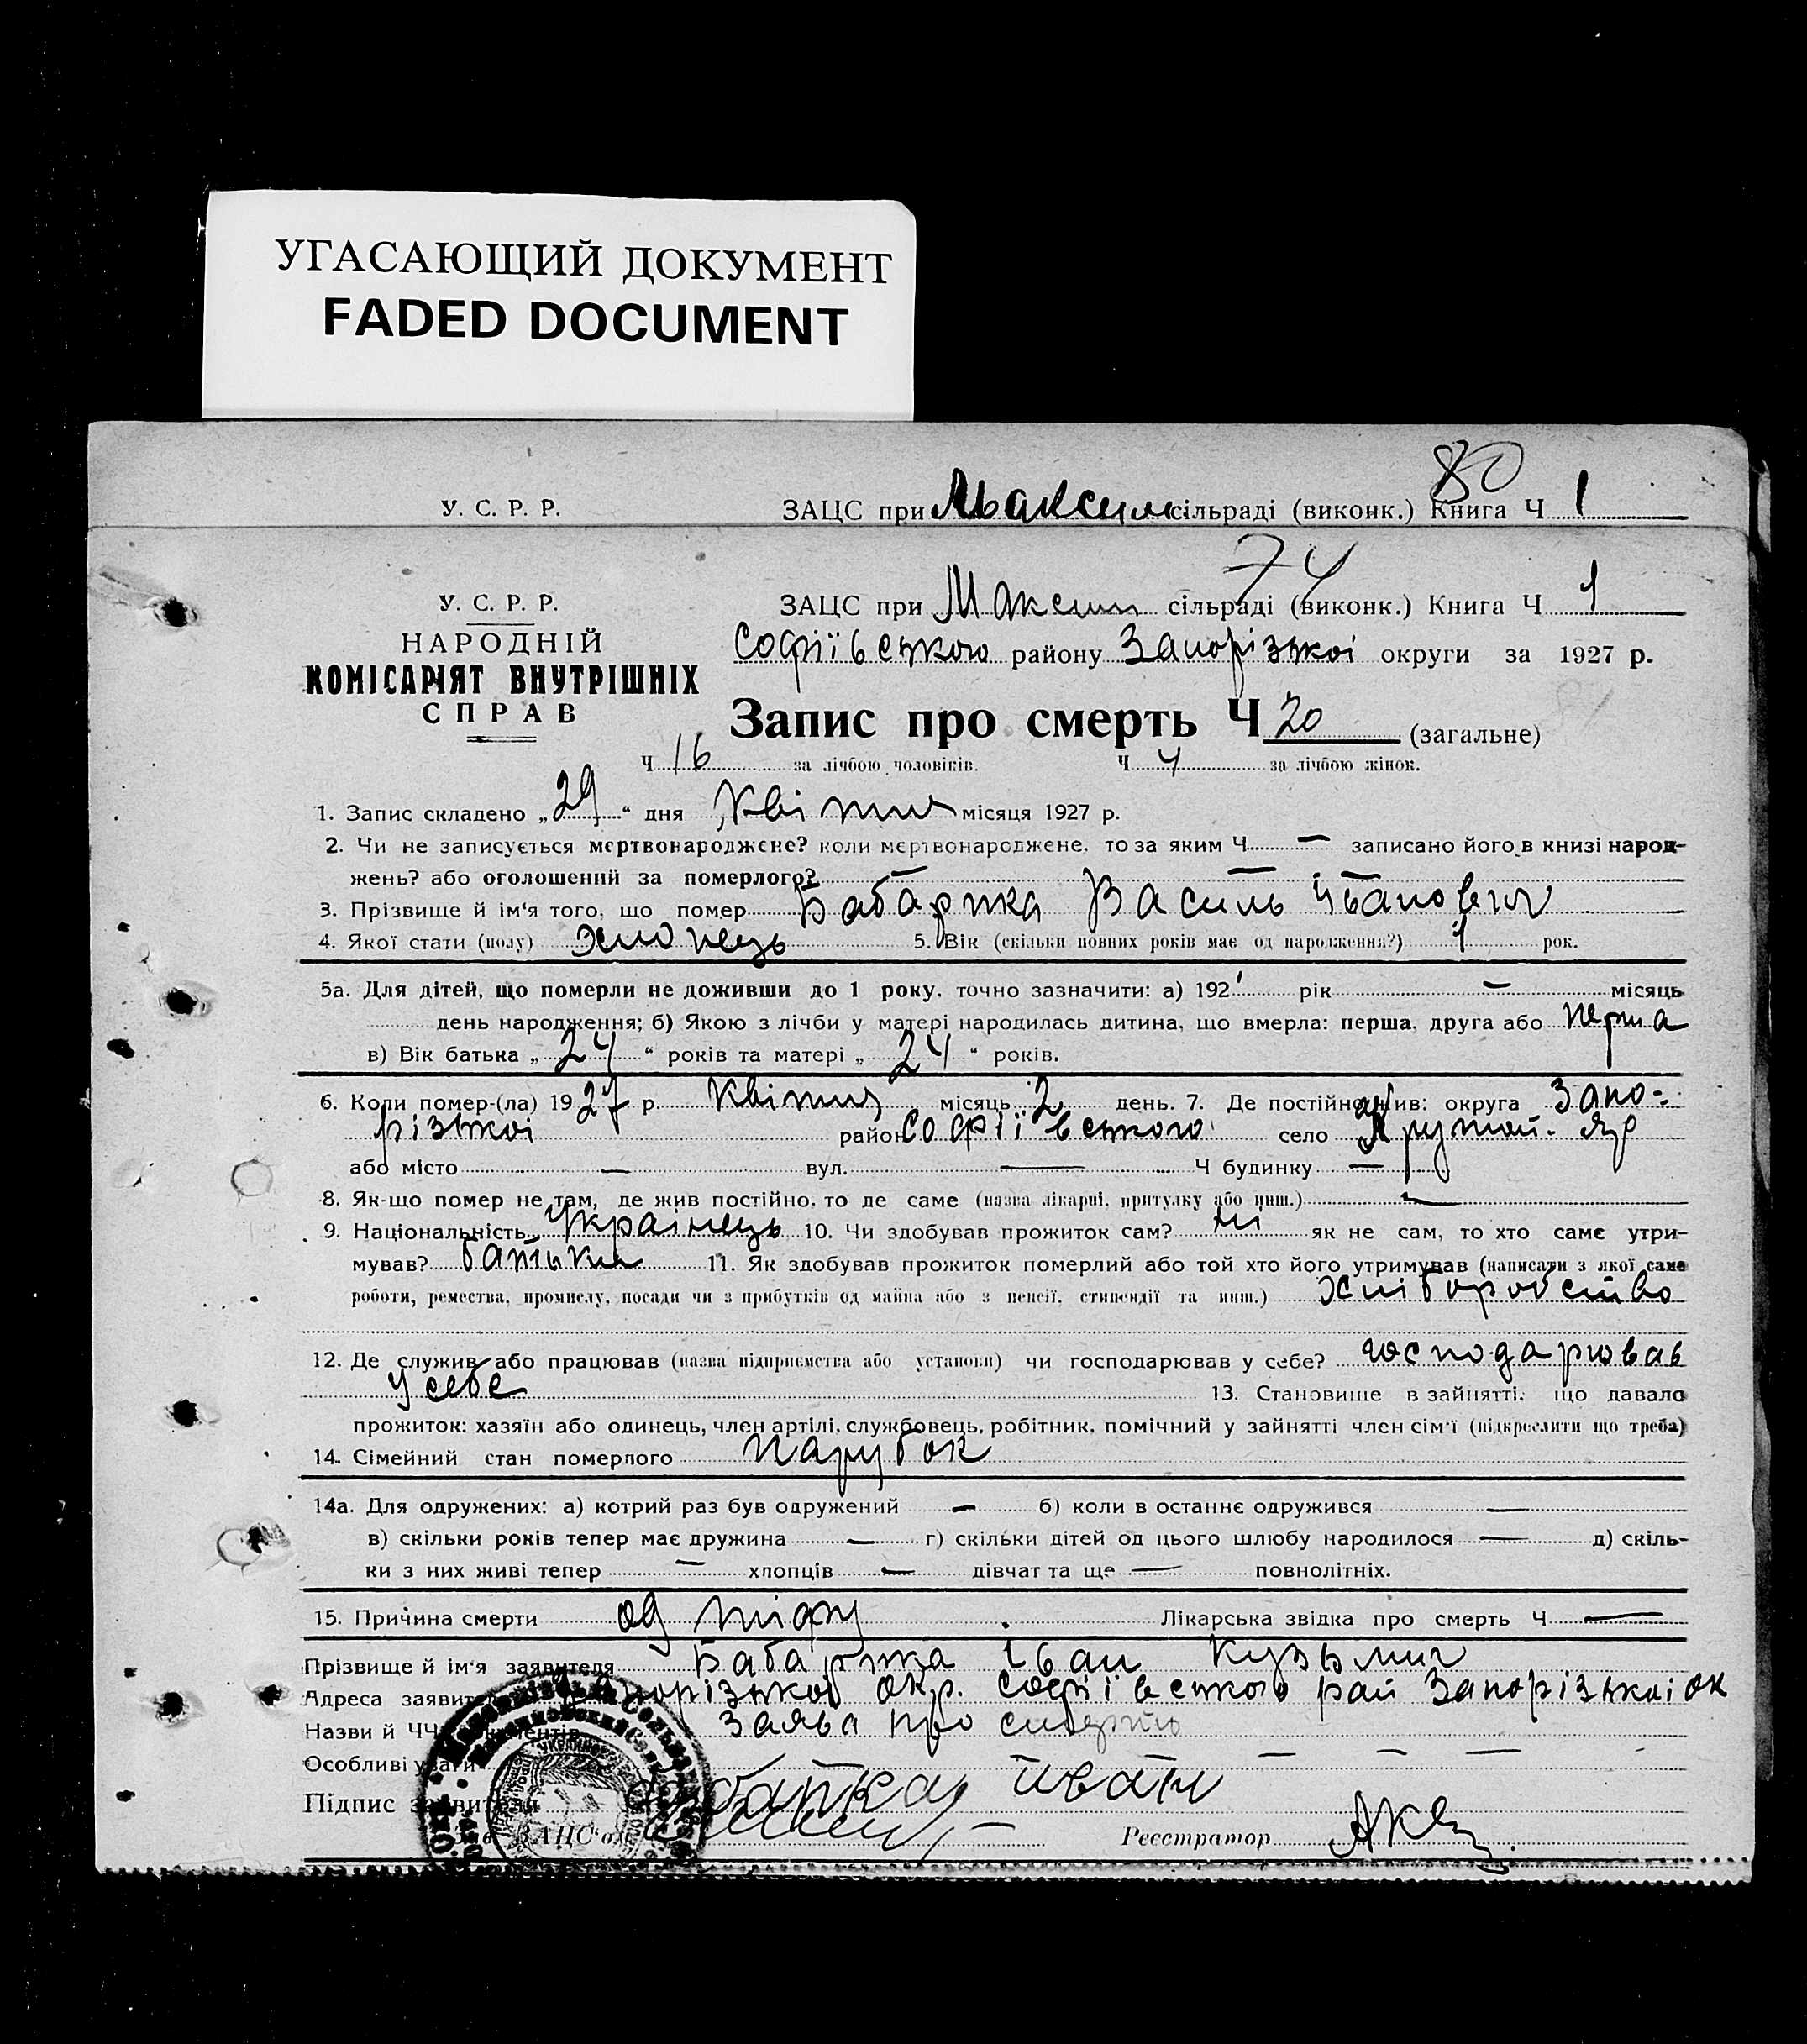 УГАСАЮЩИЙ ДОКУМЕНТ
FADED DOCUMENT
80
У. С. Р. Р. ЗАЦС при Максим сільраді (виконк.) Книга Ч 1
74
У. С. Р. Р. ЗАЦС при Максим сільраді (виконк.) Книга Ч 1
НАРОДНІЙ Софіївського району Запорізької округи за 1927 р.
КОМІСАРІЯТ ВНУТРІШНІХ
СПРАВ Запис про смерть Ч 20 (загальне)
Ч 16 за лічбою чоловіків. Ч 4 за лічбою жінок.
1. Запис складено „29“ дня Квітня місяця 1927 р.
2. Чи не записується мертвонароджене? коли мертвонароджене, то за яким Ч — записано його в книзі народ-
жень? або оголошений за померлого? —
3. Прізвище й ім'я того, що помер Бабарика Василь Іванович
4. Якої стати (полу) хлопець 5. Вік (скільки повних років має од народження?) 1 рок.
5а. Для дітей, що померли не доживши до 1 року, точно зазначити: а) 192 рік — місяць
день народження; б) Якою з лічби у матері народилась дитина, що вмерла: перша, друга або перша
в) Вік батька „24“ років та матері „24“ років.
6. Коли помер-(ла) 1927 р. Квітня місяць 2 день. 7. Де постійно жив: округа Запо-
різької район Софіївського село Крутой-Яр
або місто — вул. — Ч будинку —
8. Як-що помер не там, де жив постійно, то де саме (назва лікарні, притулку або инш.) —
9. Національність Українець 10. Чи здобував прожиток сам? ні як не сам, то хто саме утри-
мував? батьки 11. Як здобував прожиток померлий або той хто його утримував (написати з якої саме
роботи, ремества, промислу, посади чи з прибутків од майна або з пенсії, стипендії та инш.) хліборобство
12. Де служив або працював (назва підприємства або установи) чи господарював у себе? господарював
у себе 13. Становище в зайнятті, що давало
прожиток: хазяїн або одинець, член артілі, службовець, робітник, помічний у зайнятті член сім'ї (підкреслити що треба)
14. Сімейний стан померлого парубок
14а. Для одружених: а) котрий раз був одружений — б) коли в останнє одружився —
в) скільки років тепер має дружина — г) скільки дітей од цього шлюбу народилося — д) скіль-
ки з них живі тепер — хлопців — дівчат та ще — повнолітніх.
15. Причина смерти од тифу Лікарська звідка про смерть Ч —
Прізвище й ім'я заявителя Бабарика Іван Кузьмич
Адреса заявителя Запорізької окр. Софіївського рай Запорізької ок
Назви й ЧЧ документів Заява про смерть
Особливі уваги — — —
Підпис заявителя Іван
Зав. ЗАЦС'ом Реєстратор